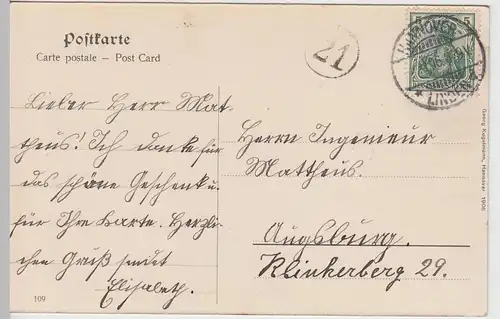 Postkarte
Carte postale — Post Card
21
5 5
HANNOVER
* LINDEN
Lieber Herr Mat-
theus! Ich danke für
das schöne Geschenk u.
für Ihre Karte. Herzli-
chen Gruß sendet
Elisabeth.
Herrn Ingenieur
Mattheus.
Augsburg.
Klinkerberg 29.
Georg Kugelmann, Hannover 1906
109